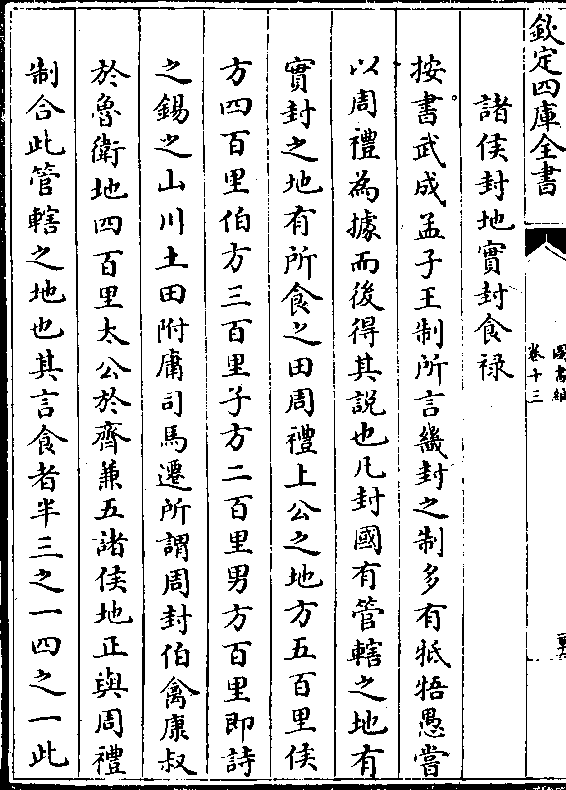 欽定四庫全書
圖書編
卷十三
諸侯封地實封食禄
按書武成孟子王制所言幾封之制多有牴牾愚嘗
以周禮為據而後得其説也凡封國有管轄之地有
實封之地有所食之田周禮上公之地方五百里侯
方四百里伯方三百里子方二百里男方百里即詩
之錫之山川土田附庸司馬遷所謂周封伯禽康叔
於魯衛地四百里太公於齊兼五諸侯地正與周禮
制合此管轄之地也其言食者半三之一四之一此